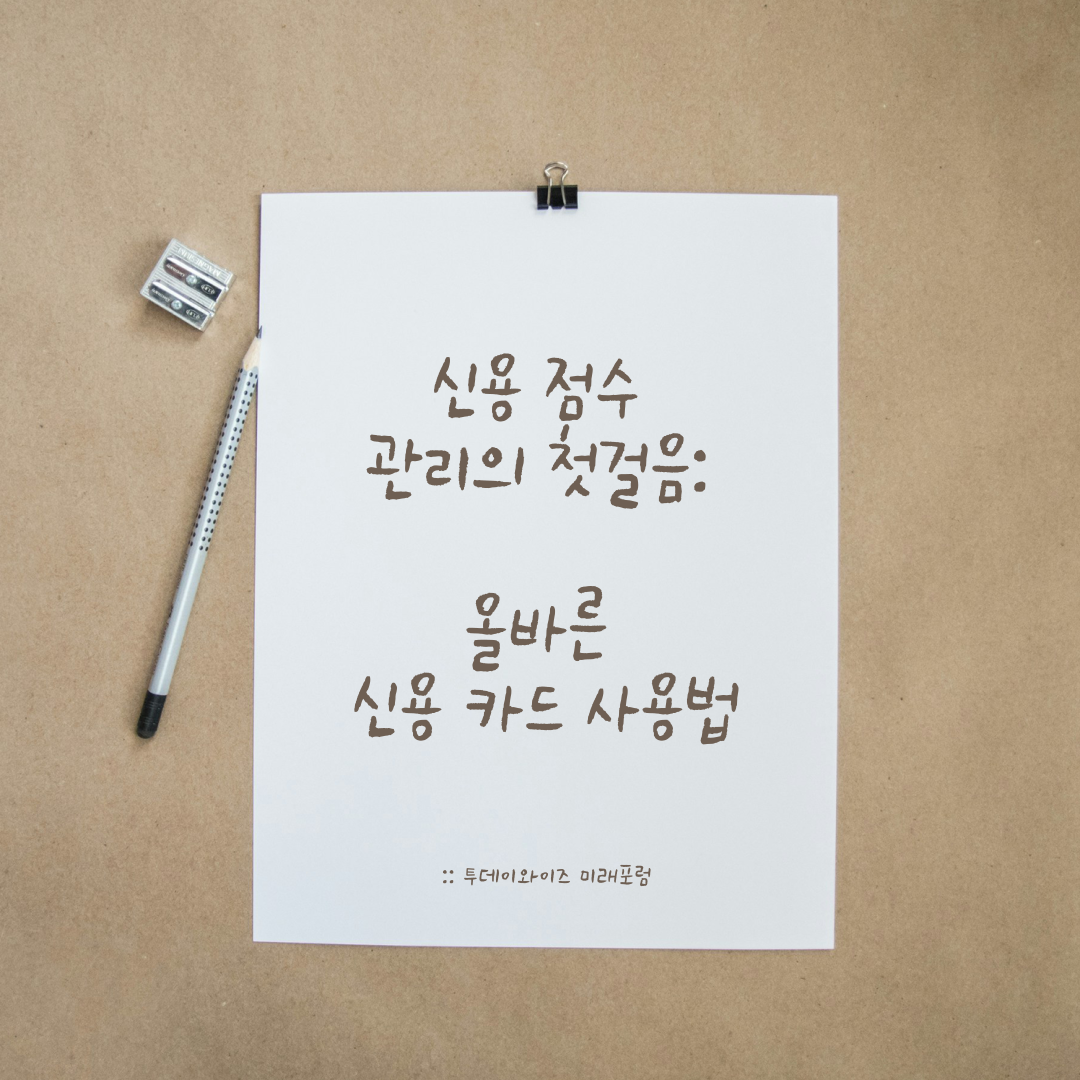 신용 점수
관리의 첫걸음:
올바른
신용 카드 사용법
:: 투데이와이즈 미래포럼